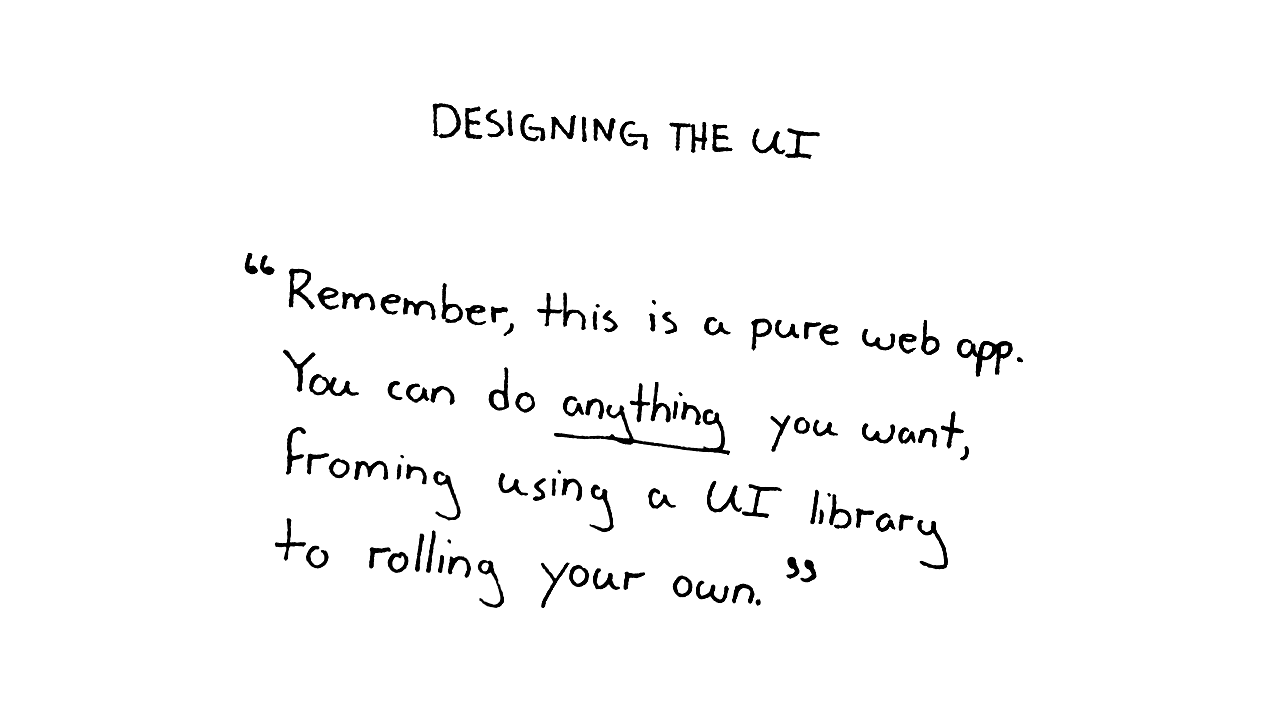 DESIGNING THE UI
“Remember, this is a pure web app.
You can do anything you want,
froming using a UI library
to rolling your own.”